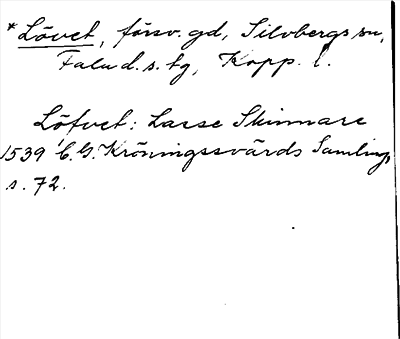 * Lövet, försv. gd, Silvbergs sn,
Falu d. s. tg, Kopp. l.
Löfvet: Lasse Skinnare
1539 C. G. Kröningssvärds Samling,
s. 72.